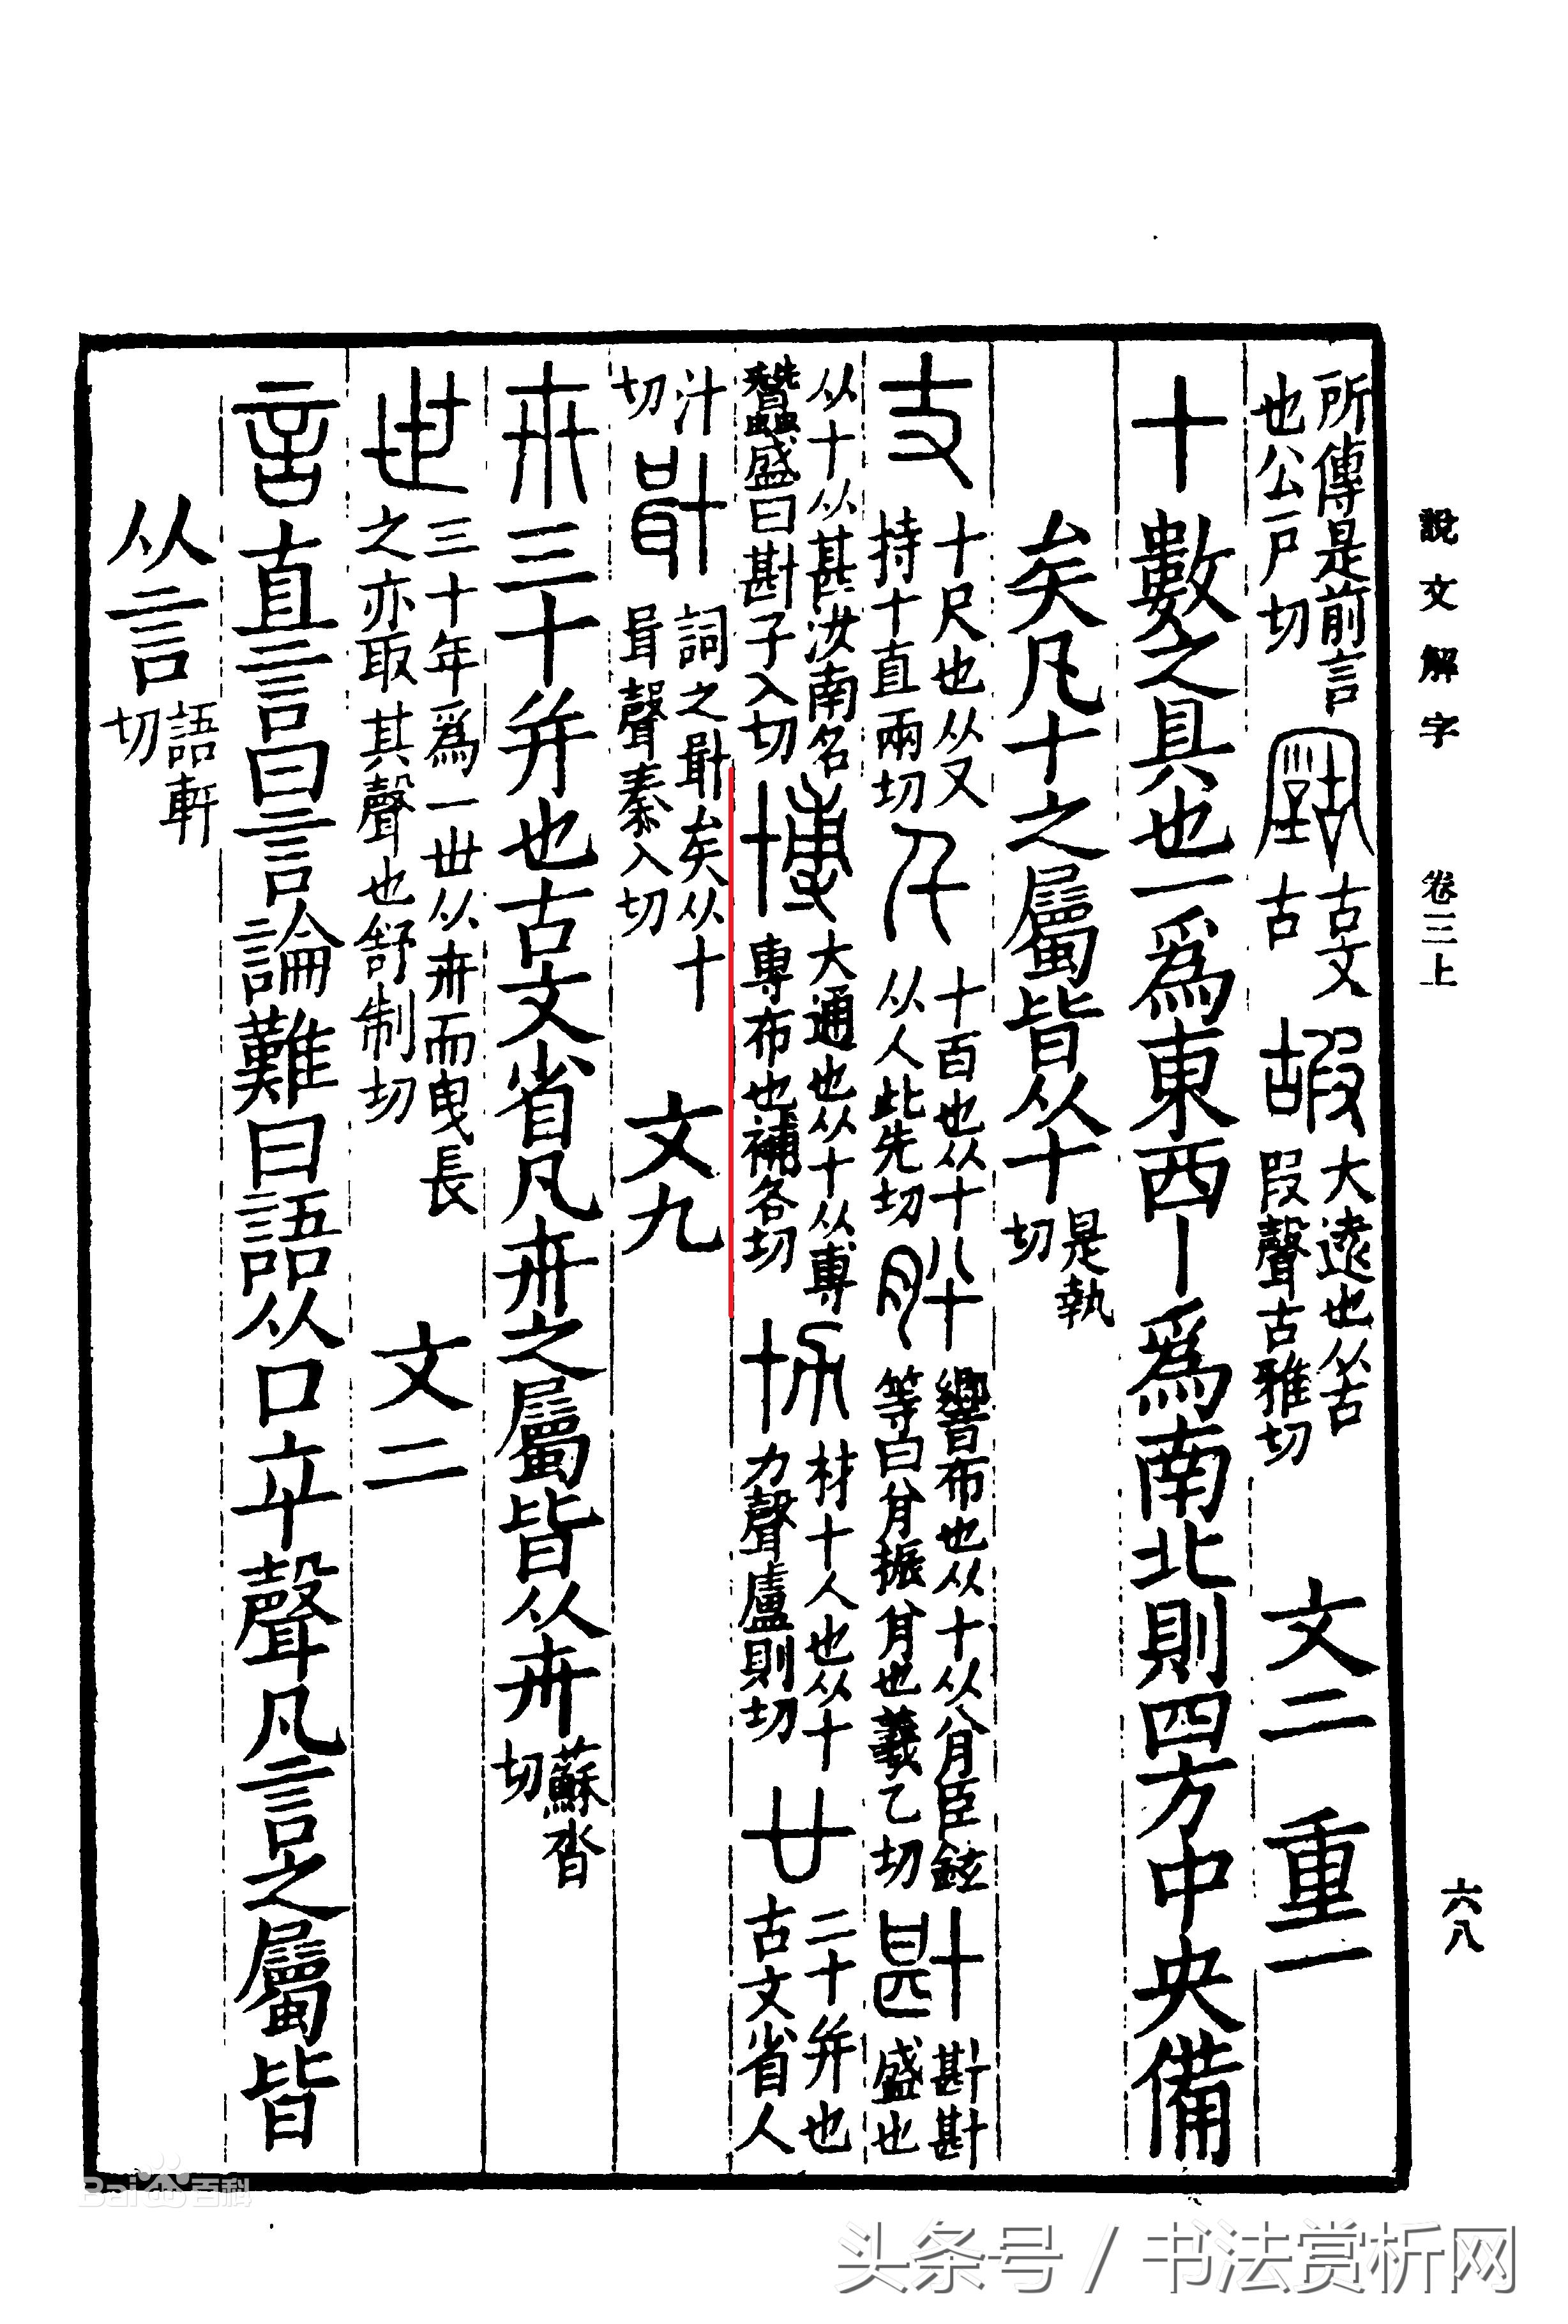 說文解字 卷三上 六八
所傳是前言也公戶切 𡔷 古文古 嘏 大遠也从古叚聲古雅切 文二 重一
十 數之具也一爲東西丨爲南北則四方中央備
矣凡十之屬皆从十 是執切
丈 十尺也从又持十直兩切 千 十百也从十从人此先切 肸 響布也从十从㕣臣鉉等曰㕣振㕣也羲乙切 斟 斟斟盛也
从十从甚汝南名蠶盛曰斟子入切 博 大通也从十从尃尃布也補各切 㔹 材十人也从十力聲盧則切 廿 二十幷也古文省人
汁切 卙 詞之卙矣从十咠聲秦入切 文九
卅 三十幷也古文省凡卅之屬皆从卅 蘇沓切
世 三十年爲一世从卅而曳長之亦取其聲也舒制切 文二
言 直言曰言論難曰語从口䇂聲凡言之屬皆
从言 語軒切
Bai百科
头条号 / 书法赏析网